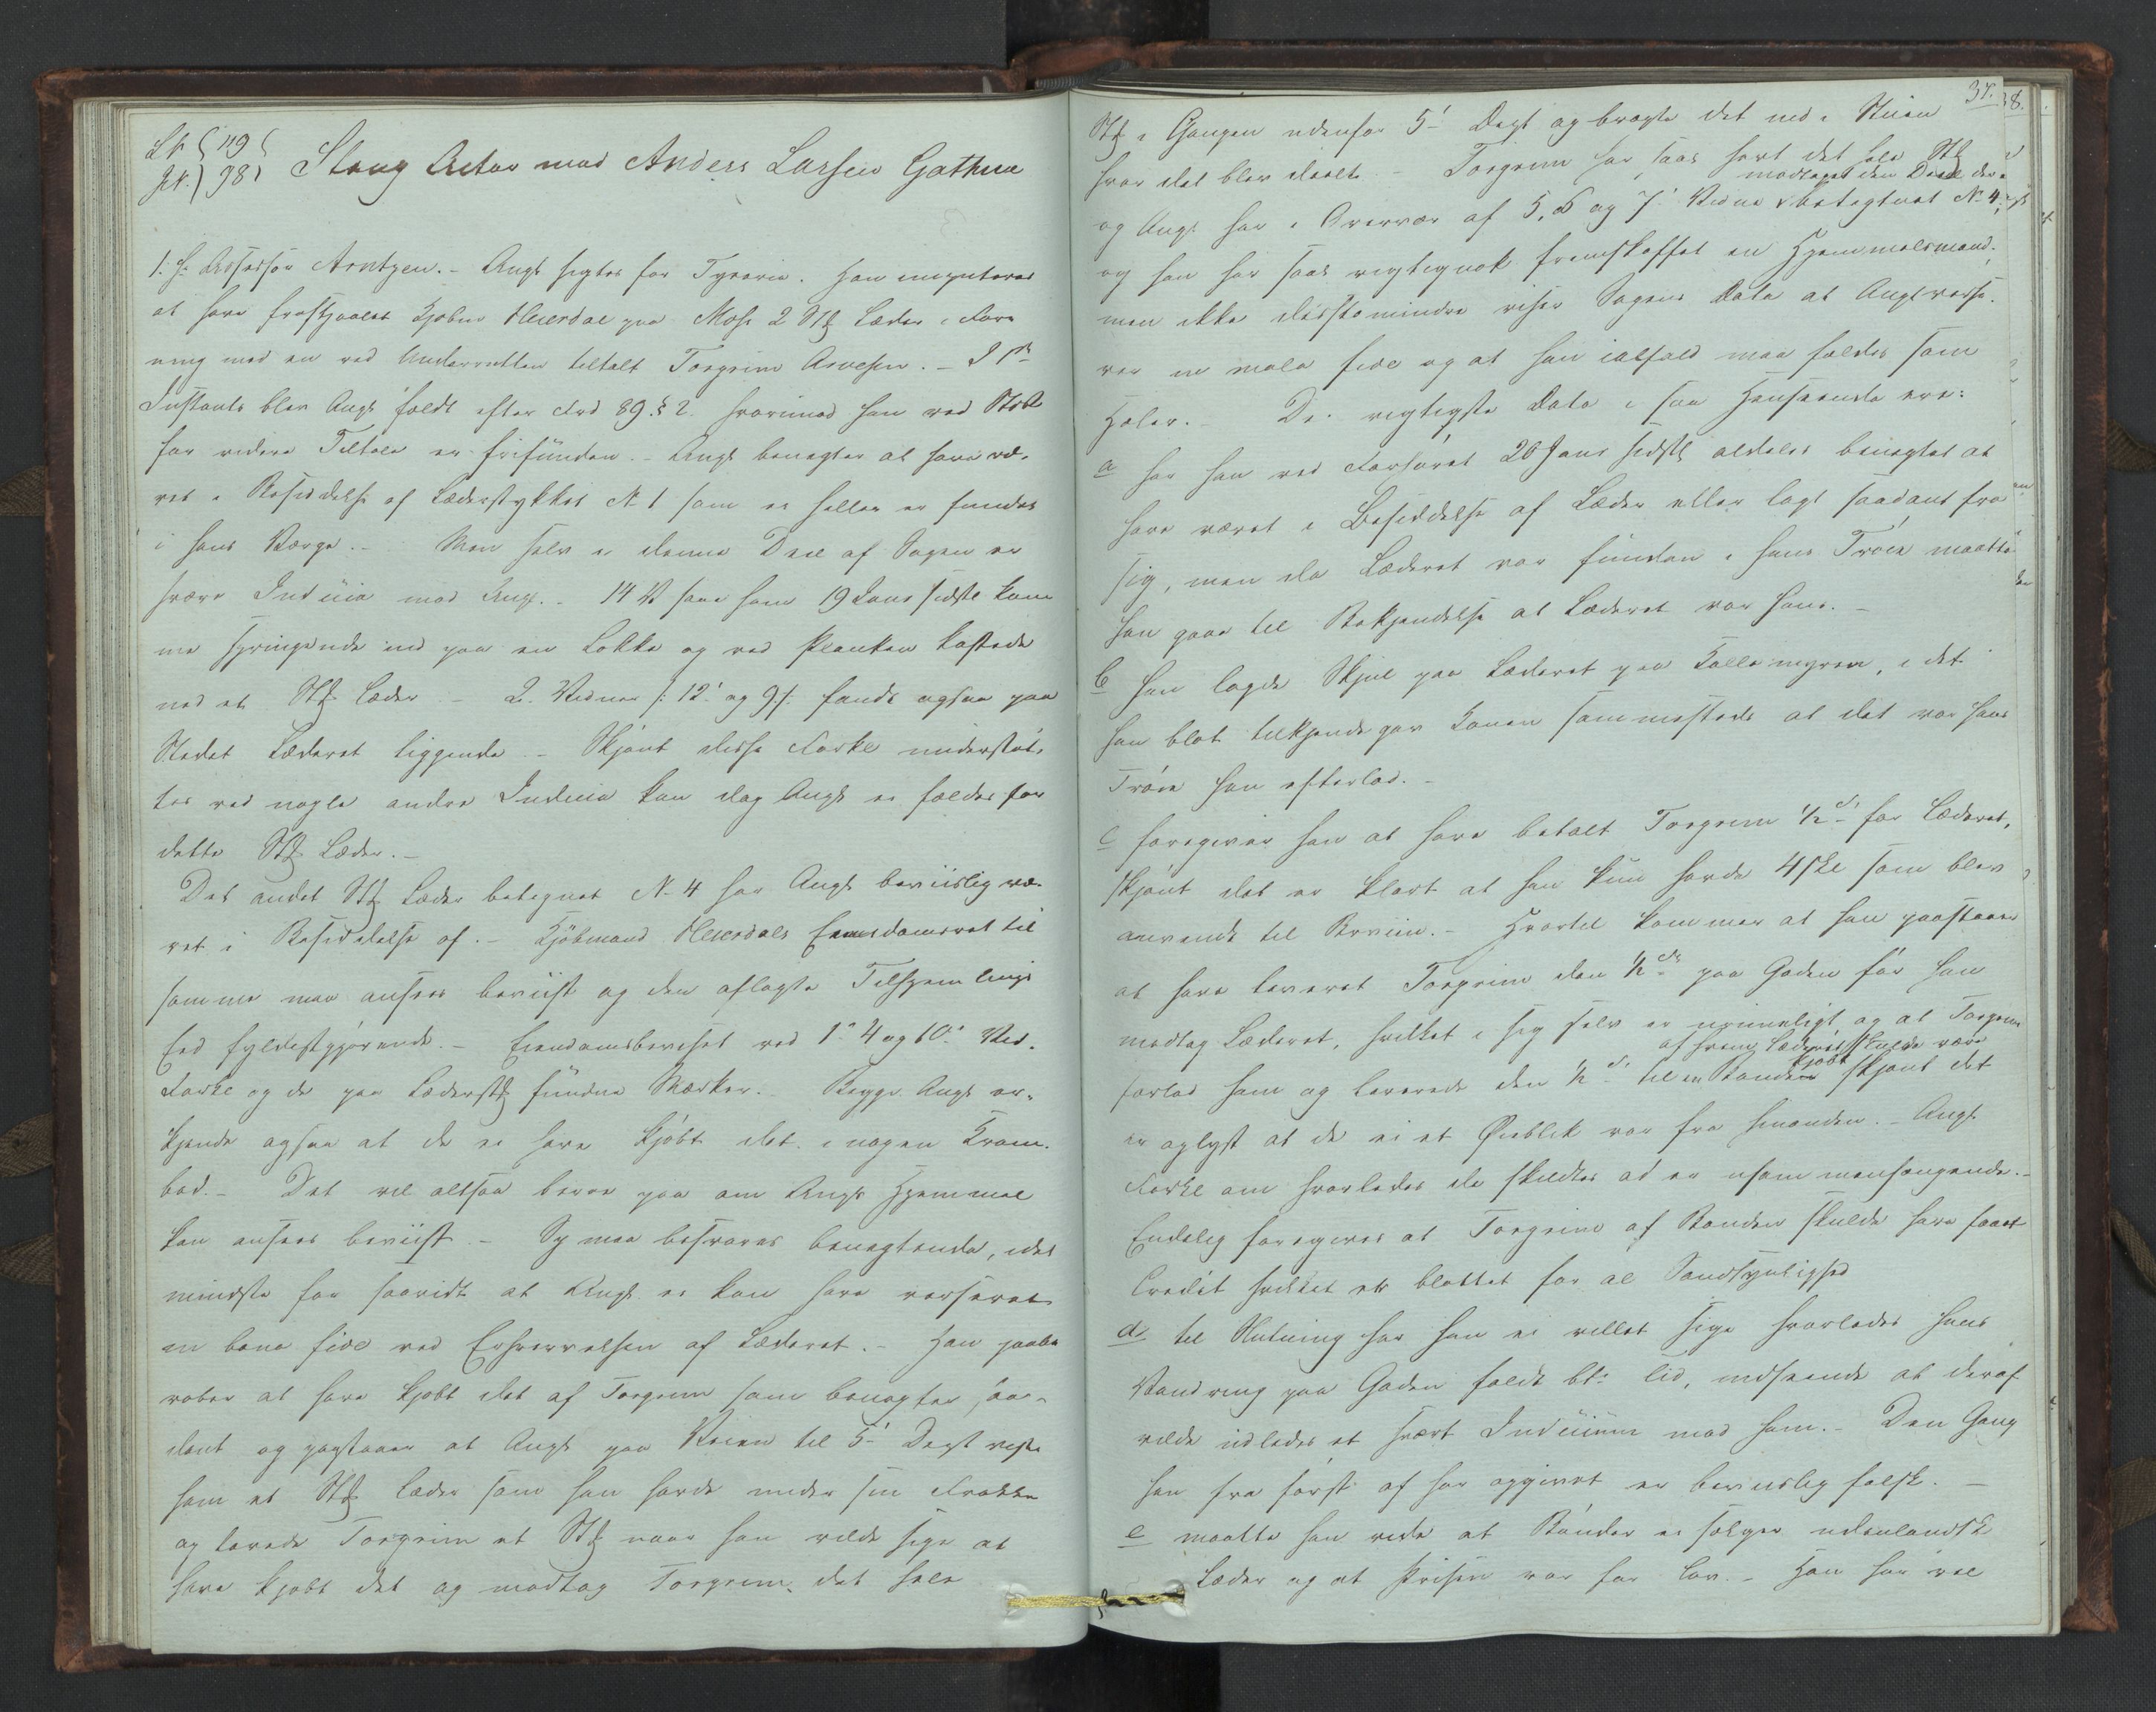 L.N. 119
J.N. 98
Stang Actor mod Anders Larsen Gathue
1. H. Assessor Arntzen. - Angl: sigtes for Tyverie. Han imputeres
at have frastjaalet Kjøbm. Heierdal paa Moss 2 Stk Læder i Fore
ning med en ved Underretten tiltalt Torgrim Arvesen. - I 1ste
Instants blev Angl. fældt efter Frd 89 § 2. hvorimod han ved StOR
for videre Tiltale er frifunden. - Angl. benægter at have væ-
ret i Besiddelse af Læderstykket N. 1 som ei heller er fundet
i hans Værge. - Men selv i denne Deel af Sagen er
svære Indicia mod Ang. - 14 V saae ham 19 Janr sidstl. kom
me springende ind paa en Løkke og ved Planken kastede
ned et Stk Læder - 2. Vidner /: 12. og 9 :/ fandt ogsaa paa
Stedet Læderet liggende. - Skjønt disse Facta understøt-
tes ved nogle andre Indicia kan dog Angl. ei fældes for
dette Stk Læder. -
Det andet Stk Læder betegnet N. 4 har Angl. beviislig væ-
ret i Besiddelse af. - Kjøbmand Heierdals Eiendomsret til
samme maa ansees beviist og den aflagte Tilhjemlings
Eed fyldestgjørende. - Eiendomsbeviset ved 1. 4 og 10. Vid.
Facta og de paa Læderstk fundne Mærker. - Begge Angl. er-
kjende ogsaa at de ei have kjøbt det i nogen Kram-
bod. - Det vil altsaa beroe paa om Angls Hjemmel
kan ansees beviist. - Sp maa besvares benægtende, idet
mindste for saavidt at Angl. ei kan have verseret
in bona fide ved Erhvervelsen af Læderet. - Han paabe
raaber at have kjøbt det af Torgrim som benægter saa-
dant og paastaaer at Angl. paa Veien til 5. Dept viste
ham et Stk Læder som han havde under sin Frakke
og lovede Torgrim et Stk naar han vilde sige at
have kjøbt det og modtog Torgrim det hele
37.
38.
Stk i Gangen udenfor 5. Dept og bragte det ind i Stuen
hvor det blev deelt. - Torgrim har saas havt det hele Stk
og Angl. har i Overvær af 5, 6 og 7. Vidne modtaget den Deel der er betegnet N. 4
og han har saas rigtignok fremskaffet en Hjemmelsmand;
men ikke destomindre viser Sagens Data at Angl. verse-
rer in mala fide og at han ialfald maa fældes som
Hæler. - De vigtigste Data i saa Henseende ere:
a har han ved Forhøret 20 Janr sidstl. aldeles benægtet at
have været i Besiddelse af Læder eller lagt saadant fra
sig, men da Læderet var funden i hans Trøie maatte
han gaae til Bekjendelse at Læderet var hans. -
b han lagde Skjul paa Læderet paa Kallemyren, i det
han blot tilkjendegav Konen sammesteds at det var hans
Trøie han efterlod. -
c foregiver han at have betalt Torgrim ½ d. for Læderet,
skjønt det er klart at han kun havde 4 skl som blev
anvendt til Brviin. - Hvortil kommer at han paastaaer
at have leveret Torgrim den ½ d. paa Gaden før han
modtog Læderet, hvilket i sig selv er urimeligt og at Torgrim
forlod ham og leverede den ½ d. til en Bonde af hvem Læderet skulde være kjøbt skjønt det
er oplyst at de ei et Øieblik var fra hinanden. - Angl.
Facta om hvorledes de skildtes ad er usammenhængende. -
Endelig foregives at Torgrim af Bonden skulde have faaet
Credit hvilket er blottet for al Sandsynlighed
d til Slutning har han ei villet sige hvorledes hans
Vandring paa Gaden faldt bl: Tid, indseende at deraf
vilde udledes et svært Indicium mod ham. - Den Gang
han fra først af har opgivet er beviislig falsk. -
e maatte han vide at Bønder ei sælger udenlandsk
Læder og at Prisen var for lav. - Han har vel